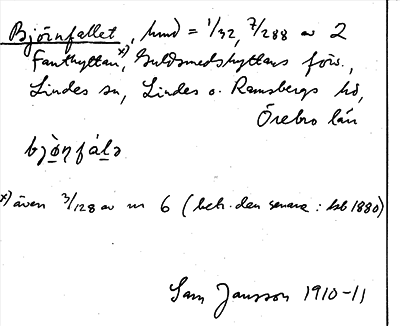 Björnfallet, hmd = 1/32, 7/288 av 2
Fanthyttan x), Guldsmedshyttans förs.,
Lindes sn, Lindes o. Ramsbergs hd,
Örebro län
bjò̱ṇfálə
x) även 3/128 av nr 6 (bet. den senare: jsb 1880)
Sam Jansson 1910-11